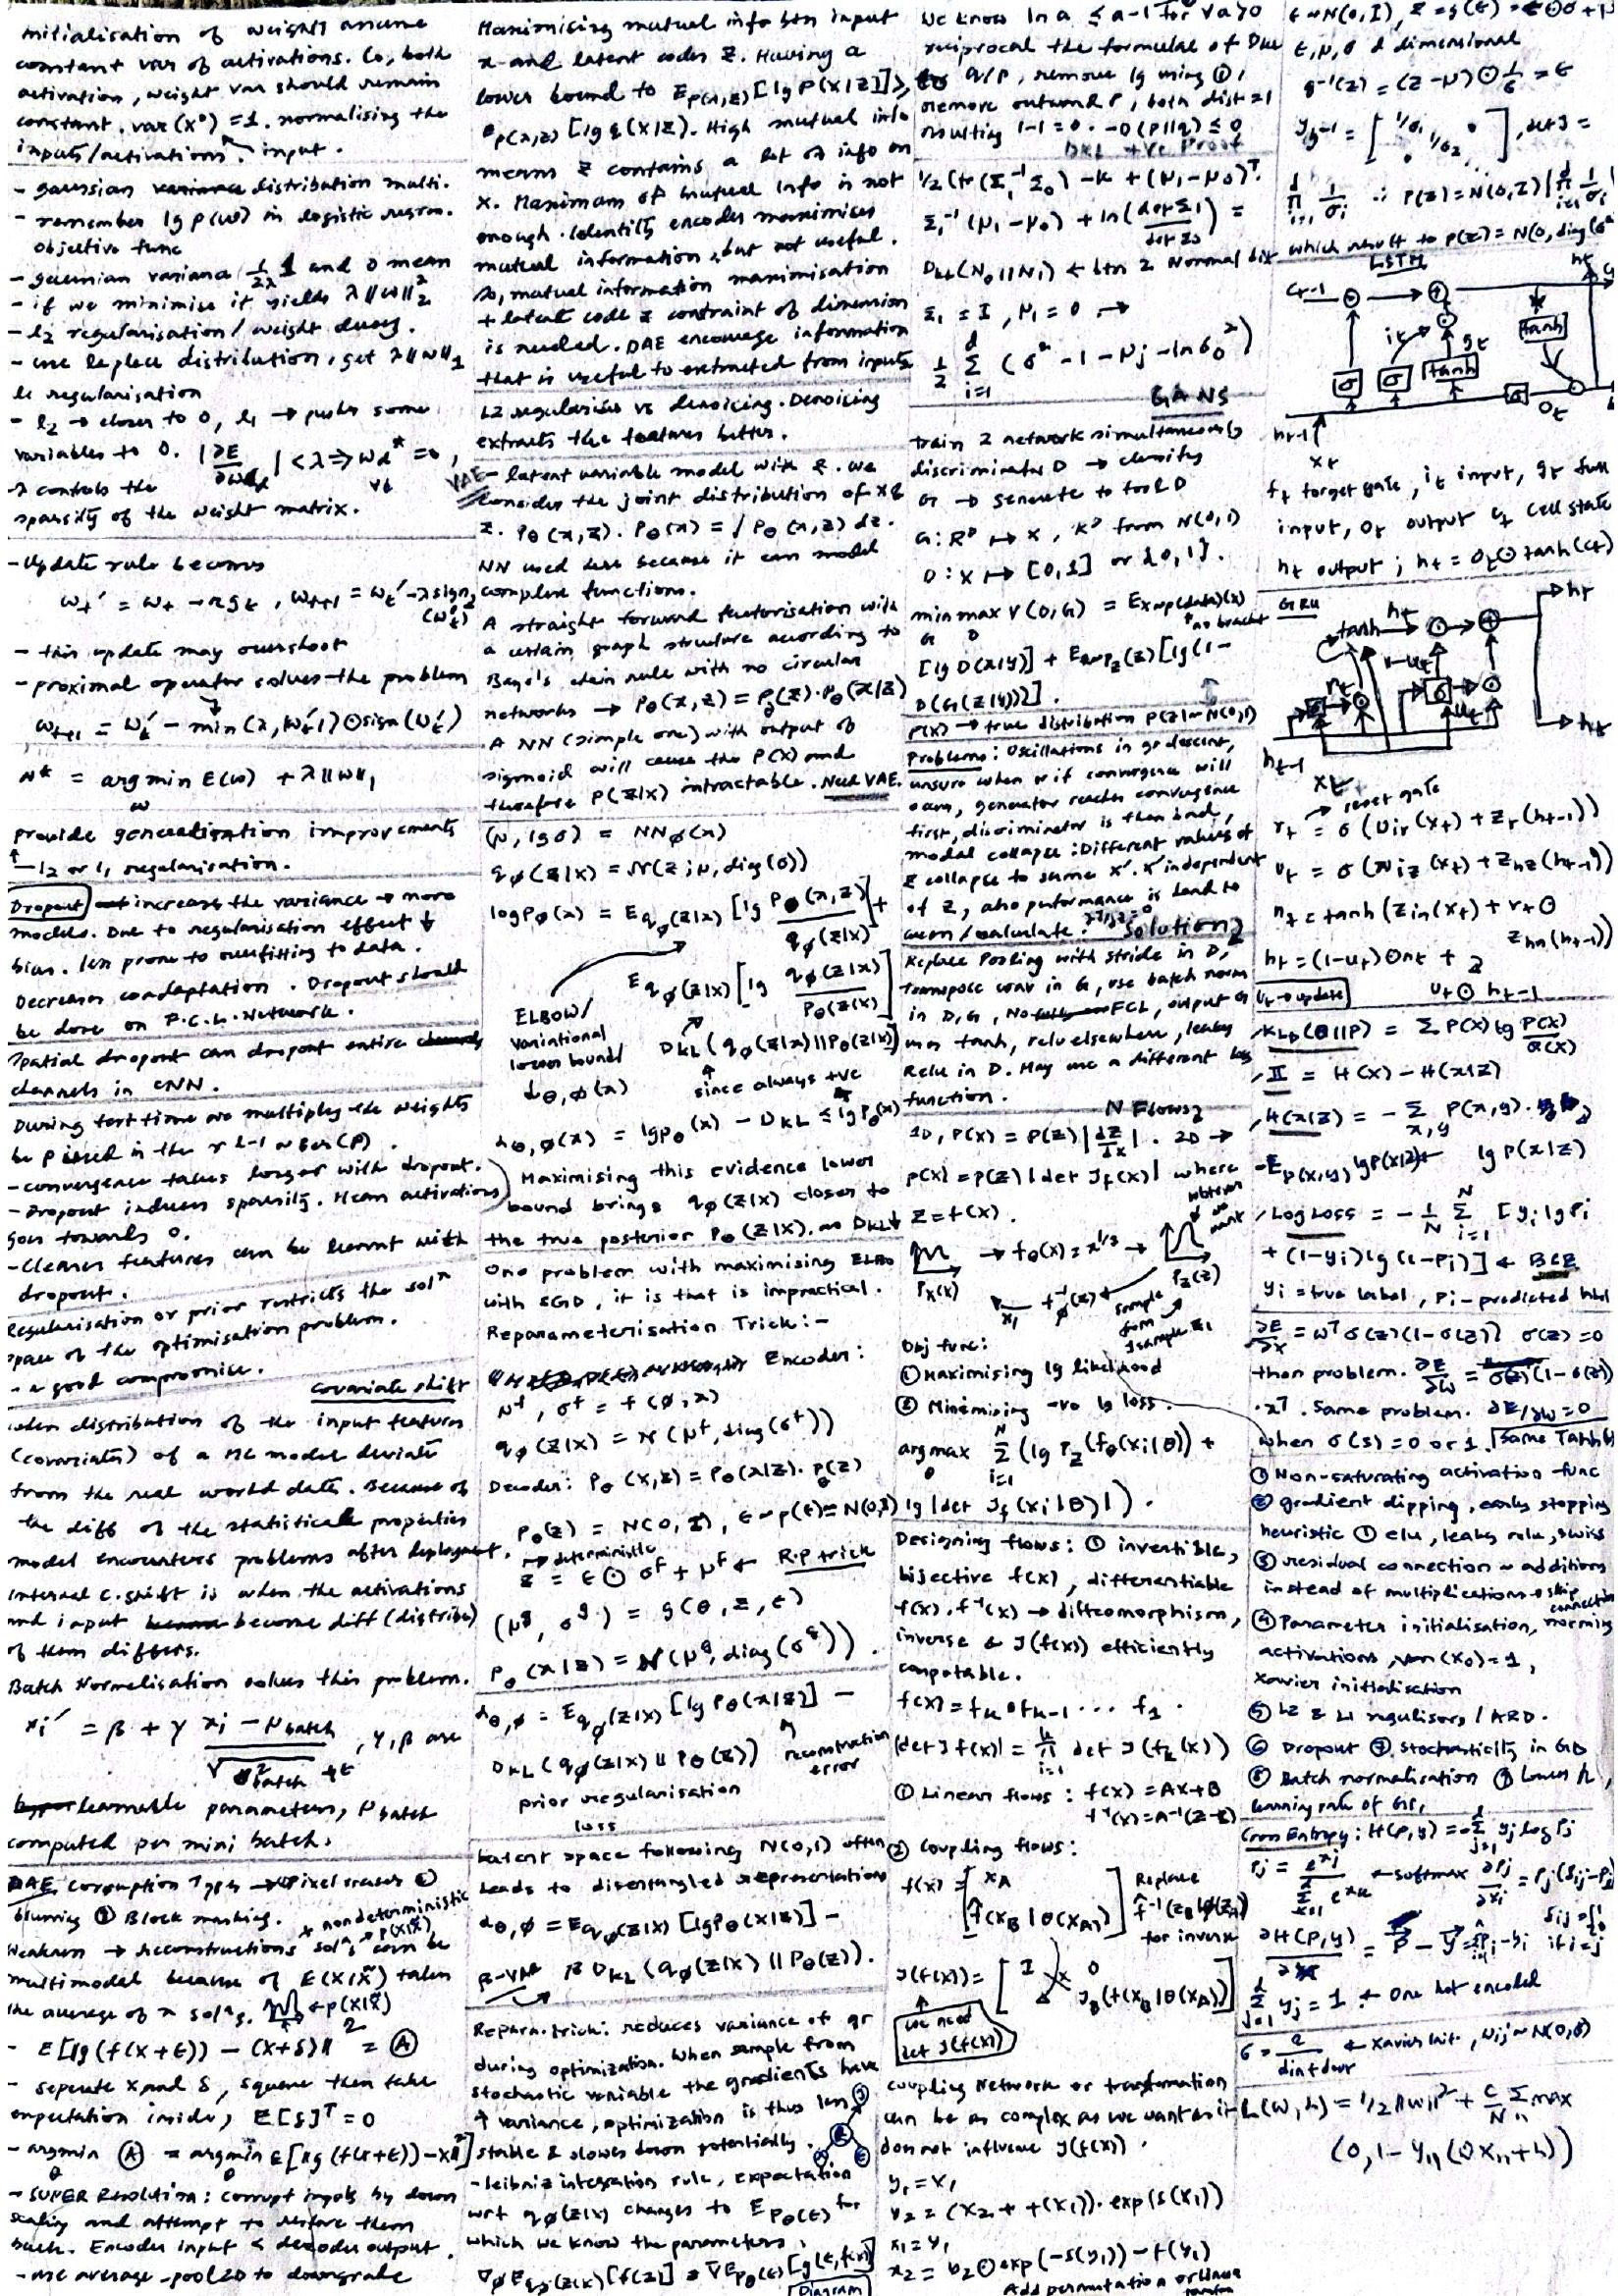 initialisation of weights assume
constant var of activations. So, both
activation, weight var should remain
constant. var(x⁰) = 1. normalising the
inputs/activations input.
- gaussian variance distribution multi.
- remember lg p(w) in logistic regrsn.
objective func
- gaussian variance 1/2λ 1 and 0 mean
- if we minimise it yields λ||w||₂²
- l₂ regularisation/weight decay.
- use Laplace distribution, get λ||w||₁
l₁ regularisation
- l₂ → closer to 0, l₁ → pushes some
variables to 0. |∂E/∂wd| < λ ⇒ wd* = 0,
λ controls the ∀d
sparsity of the weight matrix.
- Update rule becomes
wt' = wt - ηgt, wt+1 = wt' - λsign(wt')
- this update may overshoot
- proximal operator solves the problem
wt+1 = wt' - min(λ, |wt'|) ⊙ sign(wt')
w* = argmin E(w) + λ||w||₁
w
provide generalization improvements
↑ l₂ or l₁ regularisation.
Dropout increase the variance → more
models. Due to regularisation effect ↓
bias. less prone to overfitting to data.
Decreases coadaptation. Dropout should
be done on F.C.L. Network.
Spatial dropout can dropout entire
channels in CNN.
During test time we multiply the weights
be p used in the r l-1 ~ Ber(p).
- convergence takes longer with dropout.
- Dropout induces sparsity. Mean activations
goes towards 0.
- Cleaner features can be learnt with
dropout.
Regularisation or prior restricts the solⁿ
space of the optimisation problem.
- a good compromise.
Covariate shift
when distribution of the input features
(covariates) of a ML model deviate
from the real world data. Because of
the diff of the statistical properties
model encounters problems after deployment.
Internal c.shift is when the activations
and input become diff (distribs)
of them differs.
Batch Normalisation solves this problem.
xi' = β + γ (xi - μbatch)/√(σ²batch + ε), γ, β are
learnable parameters, μbatch
computed per mini batch.
DAE, Corruption Types → ① Pixel erasers ②
blurring ③ Block masking.
nondeterministic p(x|x̃)
Weakness → Reconstructions solⁿs can be
multimodal because of E(X|X̃) takes
the average of n solⁿs. ← p(x|x̃)
- E[||g(f(x+ε)) - (x+δ)||² = Ⓐ
- seperate x and δ, square then take
expectation inside, E[δ]ᵀ = 0
- argmin Ⓐ = argmin E[||g(f(x+ε)) - x||²]
θ θ
- SUPER Resolution: corrupt inputs by down
scaling and attempt to restore them
back. Encoder input < decoder output.
- use average-pool2D to downgrade
Maximising mutual info btn input
x and latent codes z. Having a
lower bound to E p(x,z) [lg p(x|z)] ≥
E p(x,z) [lg q(x|z). High mutual info
means z contains a lot of info on
x. Maximum of mutual info is not
enough. Identity encoder maximises
mutual information, but not useful.
so, mutual information maximisation
+ latent code z constraint of dimension
is needed. DAE encourage information
that is useful to extracted from inputs
L2 regularises vs denoising. Denoising
extracts the features better.
VAE - latent variable model with z. we
consider the joint distribution of x &
z. Pθ(x,z). Pθ(x) = ∫ Pθ(x,z) dz.
NN used here because it can model
complex functions.
A straight forward factorisation with
a certain graph structure according to
Baye's chain rule with no circular
networks → Pθ(x,z) = Pθ(z)·Pθ(x|z)
A NN (simple one) with output of
sigmoid will cause the P(x) and
therefore P(z|x) intractable. Need VAE.
(μ, lgσ) = NNφ(x)
qφ(z|x) = N(z; μ, diag(σ))
log Pθ(x) = E qφ(z|x) [lg Pθ(x,z)/qφ(z|x)] +
E qφ(z|x) [lg qφ(z|x)/Pθ(z|x)]
ELBOW/
variational
lower bound/
Lθ,φ(x)
DKL(qφ(z|x)||Pθ(z|x))
since always +ve
Lθ,φ(x) = lgpθ(x) - DKL ≤ lgPθ(x)
Maximising this evidence lower
bound brings qφ(z|x) closer to
the true posterior Pθ(z|x). as DKL↓
One problem with maximising ELBO
with SGD, it is that is impractical.
Reparameterisation Trick:-
Encoder:
μᶠ, σᶠ = f(φ, x)
qφ(z|x) = N(μᶠ, diag(σᶠ))
Decoder: Pθ(x,z) = Pθ(x|z)·Pθ(z)
Pθ(z) = N(0,I), ε ~ p(ε) = N(0,I)
→ deterministic
z = ε ⊙ σᶠ + μᶠ ← R.P trick
(μᵍ, σᵍ) = g(θ, z, ε)
Pθ(x|z) = N(μᵍ, diag(σᵍ)).
Lθ,φ = E qφ(z|x) [lg Pθ(x|z)] -
DKL(qφ(z|x) || Pθ(z)) reconstruction error
prior regularisation
loss
Latent space following N(0,1) often
leads to disentangled representations
Lθ,φ = E qφ(z|x) [lg Pθ(x|z)] -
β-VAE β DKL(qφ(z|x) || Pθ(z)).
Repara. trick: reduces variance of gr
during optimization. When sample from
stochastic variable the gradients have
↑ variance, optimization is thus less
stable & slower down potentially.
- leibniz integration rule, expectation
wrt qφ(z|x) changes to E Pθ(ε) for
which we know the parameters.
∇φ E qφ(z|x) [f(z)] = ∇ E Pθ(ε) [g(ε, f(x))]
Diagram
We know ln a ≤ a-1 for ∀a>0
reciprocal the formulae of DKL
q/p, remove lg using ①,
remove outward P, both dist = 1
resulting 1-1 = 0. -D(P||q) ≤ 0
DKL +ve Proof
1/2 (tr(Σ₁⁻¹Σ₀) - k + (μ₁-μ₀)ᵀ.
Σ₁⁻¹(μ₁-μ₀) + ln(detΣ₁/detΣ₀) =
DKL(N₀||N₁) ← btn 2 Normal dis
Σ₁ = I, μ₁ = 0 →
1/2 Σ (σ² - 1 - μj - lnσ₀²)
GANS
train 2 network simultaneously
discriminator D → classify
G → generate to fool D
G: Rᴰ ↦ X, Rᴰ from N(0,1)
D: X ↦ [0,1] or {0,1}.
min max V(D,G) = E x~p(data)(x)
G D no bracket
[lg D(x|y)] + E z~Pz(z) [lg(1-
D(G(z|y)))].
P(x) → true distribution P(z) ~ N(0,1)
Problems: Oscillations in gr descent,
unsure when or if convergence will
occur, generator reaches convergence
first, discriminator is then bad,
modal collapse: Different values of
z collapse to same x'. x' independent
of z, also performance is hard to
/calculate. Solutions
Replace Pooling with stride in D,
transpose conv in G, use batch norm
in D, G, No FCL, output G
uses tanh, relu elsewhere, leaky
Relu in D. May use a different loss
function.
N Flows
1D, P(x) = P(z) |dz/dx|. 2D →
P(x) = P(z) |det Jf(x)| where
z = f(x).
Px(x) → fθ(x) = x^(1/3) → Pz(z)
x₁ ← f⁻¹(z) ← sample from sample z₁
Obj func:
① Maximising lg likelihood
② Minimising -ve lg loss.
argmax Σ (lg Pz(fθ(xi|θ)) +
lg |det Jf(xi|θ)|).
Designing flows: ① invertible,
bijective f(x), differentiable
f(x), f⁻¹(x) → diffeomorphism,
inverse & J(f(x)) efficiently
computable.
f(x) = fk ∘ fk-1 ... f₁.
|det J f(x)| = Π det J(fk(x))
① Linear flows: f(x) = Ax+B
f⁻¹(x) = A⁻¹(z-B)
② Coupling flows:
f(x) = [xA
f̂(xB|θ(xA))]
Replace
f̂⁻¹(zB|θ(zA))
for inverse
J(f(x)) = [I 0
X JB(f(xB|θ(xA))]
we need
det J(f(x))
coupling Network or transformation
can be as complex as we want as it
does not influence J(f(x)).
y₁ = x₁
y₂ = (x₂ + t(x₁))·exp(s(x₁))
x₁ = y₁
x₂ = y₂ ⊙ exp(-s(y₁)) - t(y₁)
Add permutation or
ε ~ N(0,I), z = g(ε) = ε⊙σ + μ
ε, μ, σ d dimensional
g⁻¹(z) = (z-μ) ⊙ 1/σ = ε
Jg⁻¹ = [1/σ₁ 1/σ₂ 0], det J =
Π 1/σi ∴ P(z) = N(0,I) |Π 1/σi|
which result to P(z) = N(0, diag(σ²
LSTM
ct-1
it gt tanh
σ σ tanh σ
ht-1 ot
xt
ft forget gate, it input, gt full
input, ot output ct cell state
ht output; ht = ot ⊙ tanh(ct)
GRU
tanh nt ht
1-ut
rt ut
ht-1 ht
xt
→ reset gate
rt = σ(Uir(xt) + Zr(ht-1))
ut = σ(Niz(xt) + Zhz(ht-1))
nt = tanh(Zin(xt) + rt ⊙
Zhn(ht-1))
ht = (1-ut) ⊙ nt +
ut → update ut ⊙ ht-1
KLD(Q||P) = Σ P(x) lg P(x)/Q(x)
II = H(x) - H(x|z)
H(x|z) = - Σ P(x,y).
x,y
-E p(x,y) lg P(x|z) lg P(x|z)
Log Loss = -1/N Σ [yi lg Pi
+ (1-yi) lg (1-Pi)] ← BCE
yi = true label, Pi - predicted label
∂E/∂x = wᵀ σ(z)(1-σ(z)) σ(z) = 0
then problem. ∂E/∂w = σ(z)(1-σ(z))
·xᵀ. Same problem. ∂E/∂w = 0
when σ(s) = 0 or 1. Same Tanh
① Non-saturating activation func
② gradient clipping, early stopping
heuristic ① elu, leaky relu, swiss
③ residual connection ~ additions
instead of multiplications → skip connection
④ Parameter initialisation, norming
activations, var(x₀) = 1,
Xavier initialisation
⑤ L2 & L1 regulisors / ARD.
⑥ Dropout ⑦ stochasticity in GD
⑧ Batch normalisation ⑨ Lower lr,
learning rate of GD,
Cross Entropy: H(P,y) = -Σ yj log Pj
Pj = e^xj / Σ e^xk ← softmax ∂Pj/∂xi = Pj(δij-Pi)
∂H(P,y)/∂x = P - y = Pi - yi if i=j
Σ yj = 1 ← One hot encoded
σ = 2/(din+dout) ← Xavier init, wij ~ N(0,σ)
L(w,b) = 1/2||w||² + C/N Σ max
(0, 1-yn(w xn+b))